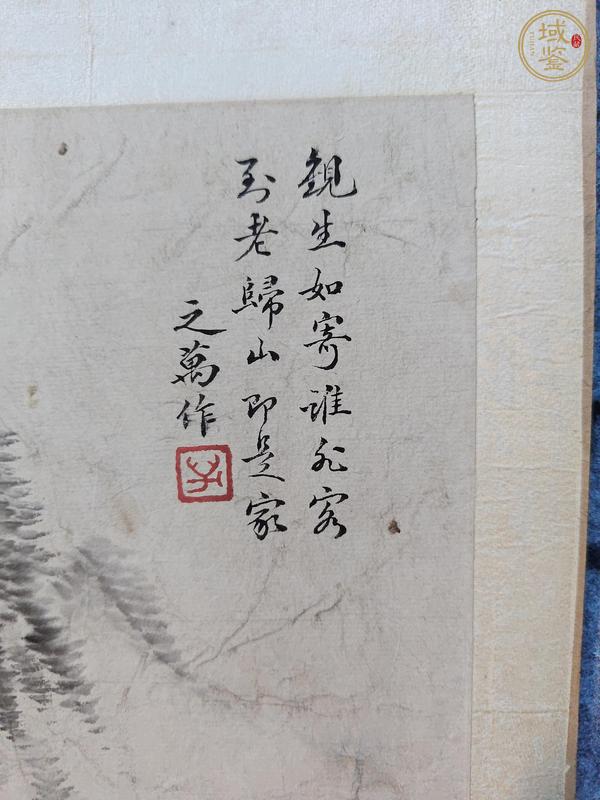 觀生如寄誰非客
到老歸山即是家
之萬作
域鉴